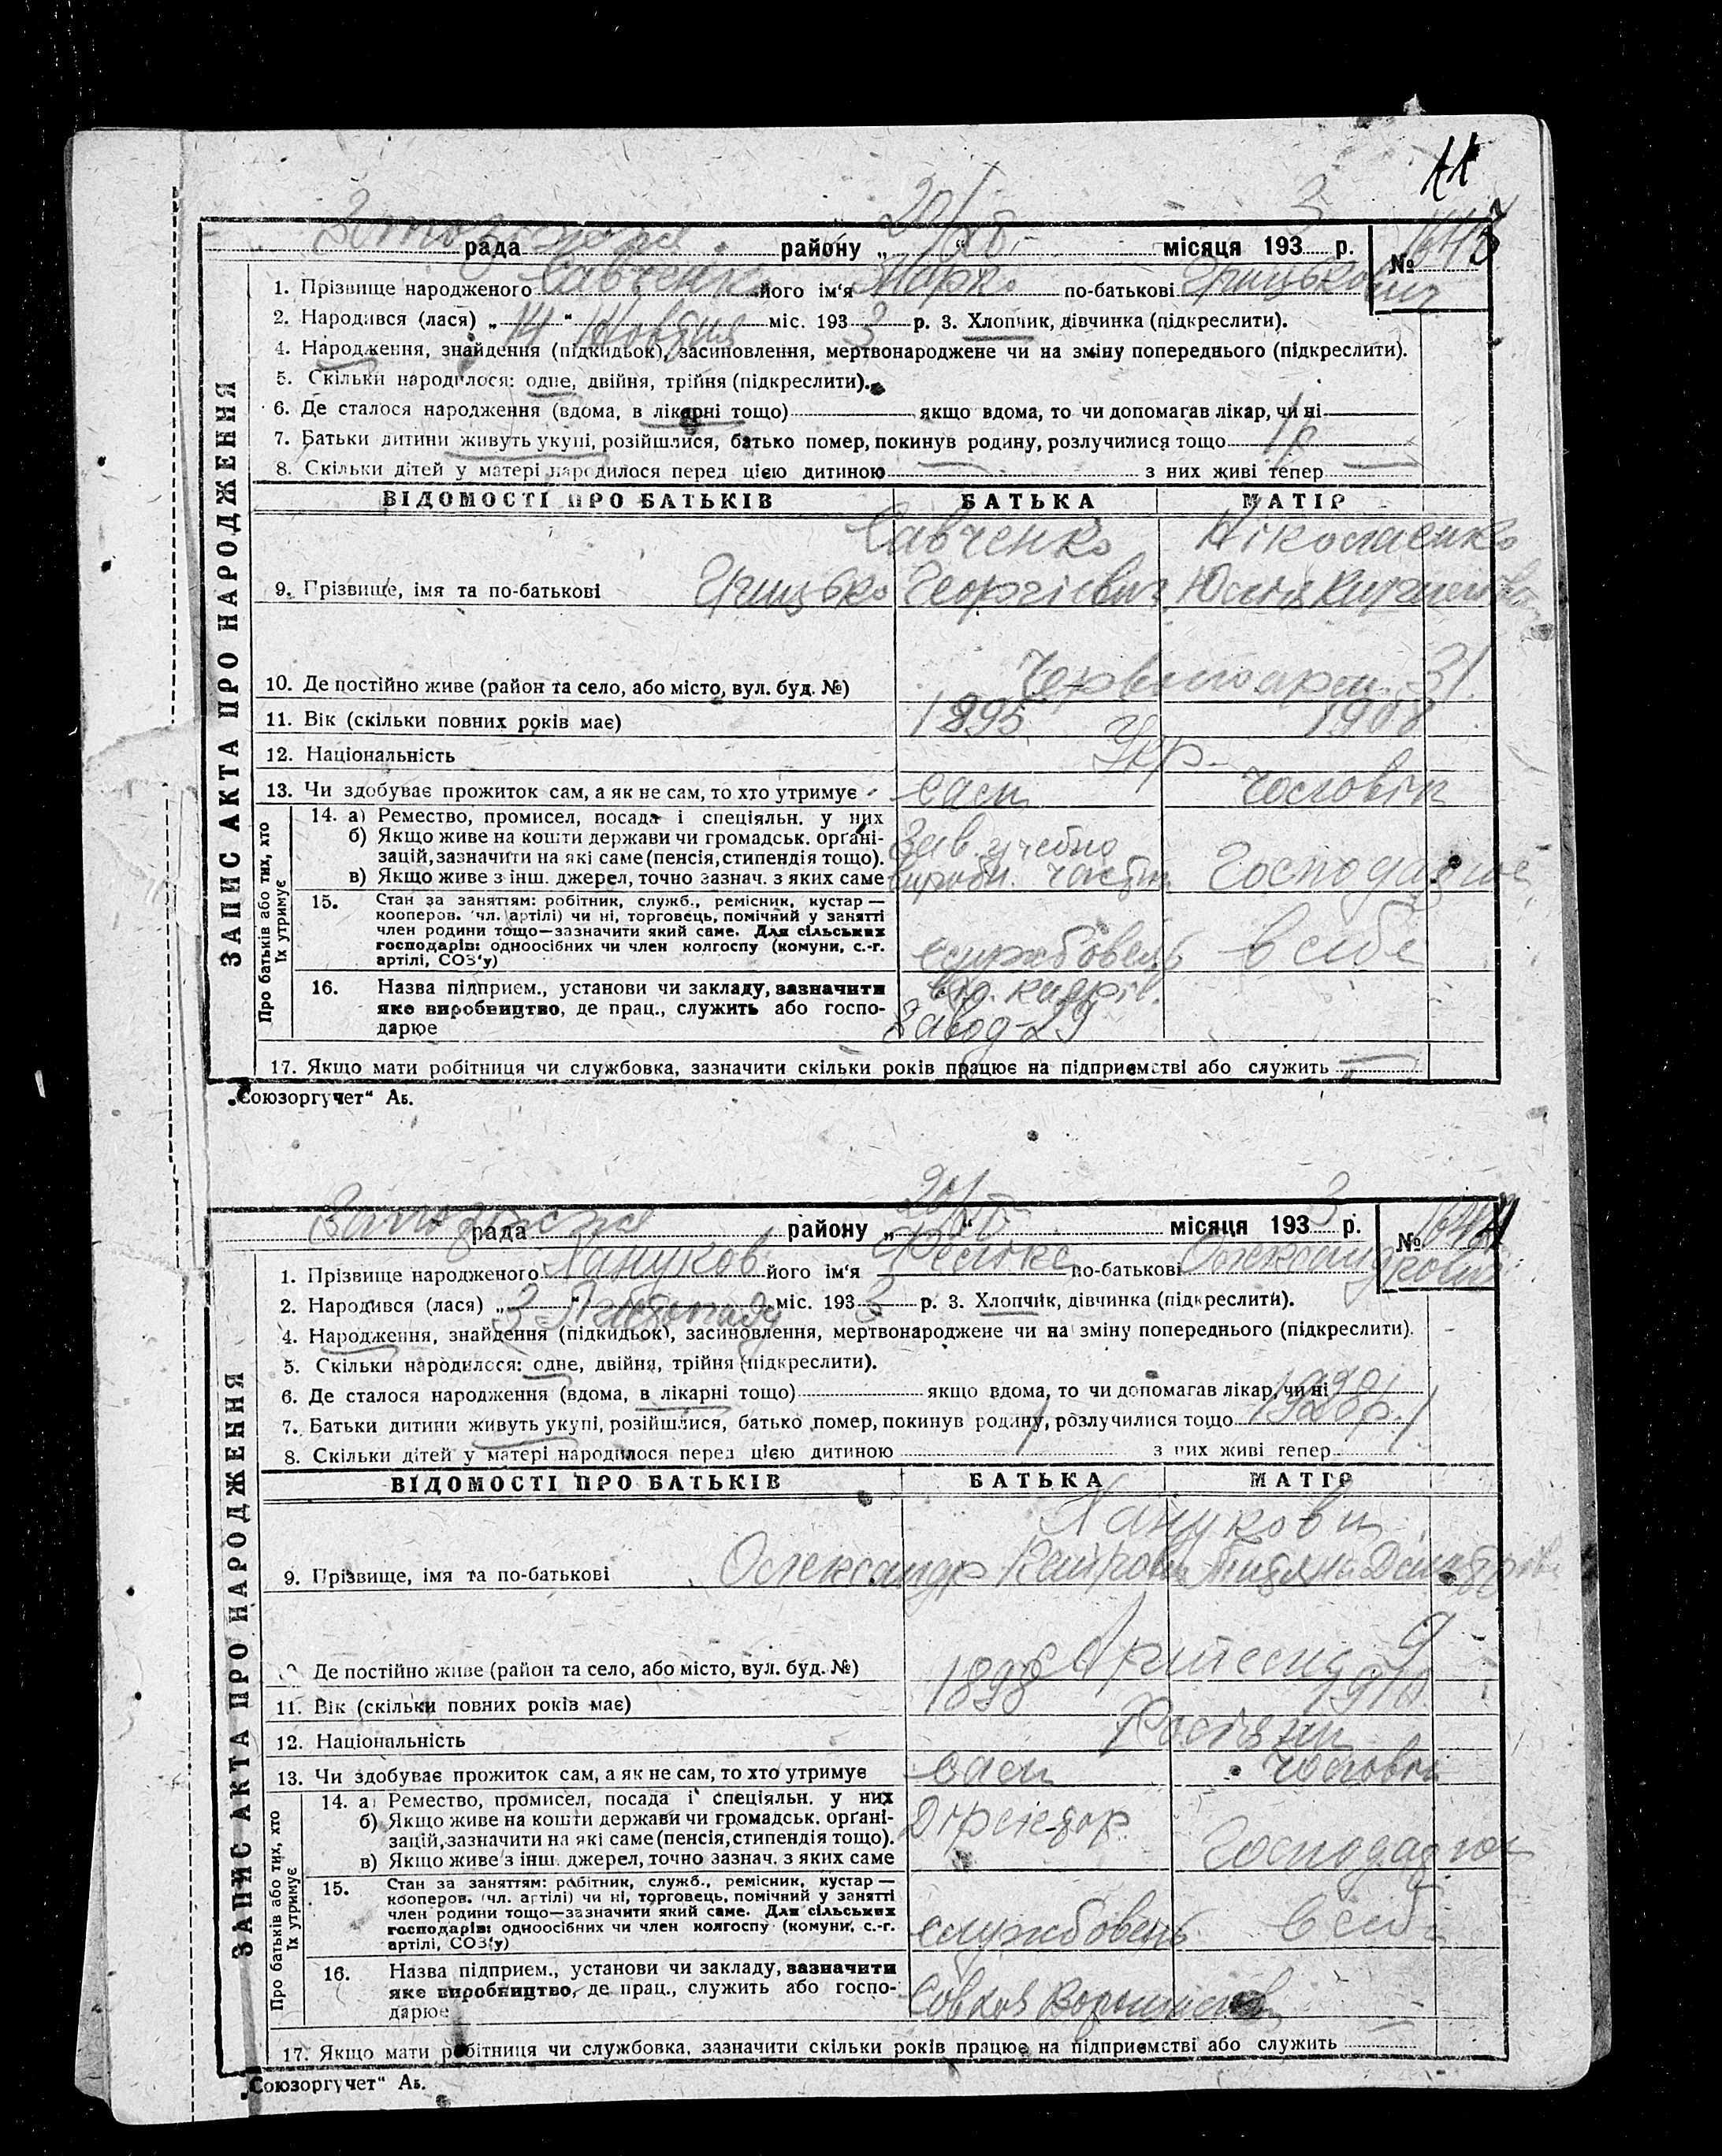 рада району „ 20/XI “ місяця 193 3 р. №
1. Прізвище народженого Савченко його ім'я Марко по-батькові Грицькович
2. Народився (лася) „ 14 “ Жовтня міс. 193 3 р. 3. Хлопчик, дівчинка (підкреслити).
4. Народження, знайдення (підкидьок), засиновлення, мертвонароджене чи на зміну попереднього (підкреслити).
5. Скільки народилося: одне, двійня, трійня (підкреслити).
6. Де сталося народження (вдома, в лікарні тощо) якщо вдома, то чи допомагав лікар, чи ні
7. Батьки дитини живуть укупі, розійшлися, батько помер, покинув родину, розлучилися тощо
8. Скільки дітей у матері народилося перед цією дитиною — з них живі тепер —
ЗАПИС АКТА ПРО НАРОДЖЕННЯ
ВІДОМОСТІ ПРО БАТЬКІВ БАТЬКА МАТІР
Савченко Ніколаенко
9. Прізвище, імя та по-батькові Грицько Георгієвич
10. Де постійно живе (район та село, або місто, вул. буд. №) Червоноарм. 31
11. Вік (скільки повних років має) 1895 1908
12. Національність Укр.
13. Чи здобуває прожиток сам, а як не сам, то хто утримує сам чоловік
Про батьків або тих, хто їх утримує
14. а) Ремество, промисел, посада і спеціяльн. у них
б) Якщо живе на кошти держави чи громадськ. органі-
зацій, зазначити на які саме (пенсія, стипендія тощо). Зав. учебно
в) Якщо живе з інш. джерел, точно зазнач. з яких саме частин.
15. Стан за заняттям: робітник, служб., ремісник, кустар —
кооперов. (чл. артілі) чи ні, торговець, помічний у занятті
член родини тощо—зазначити який саме. Для сільських
господарів: одноосібних чи член колгоспу (комуни, с.-г.
артілі, СОЗ'у) службовець
16. Назва підприєм., установи чи закладу, зазначити
яке виробництво, де прац., служить або госпо-
дарює Завод-29
17. Якщо мати робітниця чи службовка, зазначити скільки років працює на підприємстві або служить —
„Союзоргучет“ Аб.
рада району „ 20/XI “ місяця 193 3 р. №
1. Прізвище народженого Хануков його ім'я Фелікс по-батькові Олександрович
2. Народився (лася) „ 3 “ Листопаду міс. 193 3 р. 3. Хлопчик, дівчинка (підкреслити).
4. Народження, знайдення (підкидьок), засиновлення, мертвонароджене чи на зміну попереднього (підкреслити).
5. Скільки народилося: одне, двійня, трійня (підкреслити).
6. Де сталося народження (вдома, в лікарні тощо) якщо вдома, то чи допомагав лікар, чи ні
7. Батьки дитини живуть укупі, розійшлися, батько помер, покинув родину, розлучилися тощо
8. Скільки дітей у матері народилося перед цією дитиною 1 з них живі тепер 1
ЗАПИС АКТА ПРО НАРОДЖЕННЯ
ВІДОМОСТІ ПРО БАТЬКІВ БАТЬКА МАТІР
Ханукови
9. Прізвище, імя та по-батькові Олександр
10. Де постійно живе (район та село, або місто, вул. буд. №) 9
11. Вік (скільки повних років має) 1898 1910
12. Національність Росіяни
13. Чи здобуває прожиток сам, а як не сам, то хто утримує сам чоловік
Про батьків або тих, хто їх утримує
14. а) Ремество, промисел, посада і спеціяльн. у них
б) Якщо живе на кошти держави чи громадськ. органі-
зацій, зазначити на які саме (пенсія, стипендія тощо). Діректор
в) Якщо живе з інш. джерел, точно зазнач. з яких саме
15. Стан за заняттям: робітник, служб., ремісник, кустар —
кооперов. (чл. артілі) чи ні, торговець, помічний у занятті
член родини тощо—зазначити який саме. Для сільських
господарів: одноосібних чи член колгоспу (комуни, с.-г.
артілі, СОЗ'у) службовець
16. Назва підприєм., установи чи закладу, зазначити
яке виробництво, де прац., служить або госпо-
дарює
17. Якщо мати робітниця чи службовка, зазначити скільки років працює на підприємстві або служить
„Союзоргучет“ Аб.